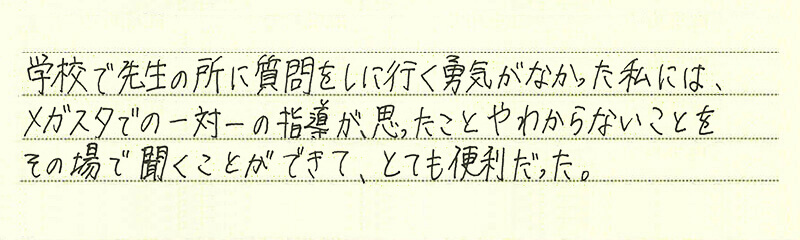 学校で先生の所に質問をしに行く勇気がなかった私には、
メガスタでの一対一の指導が、思ったことやわからないことを
その場で聞くことができて、とても便利だった。